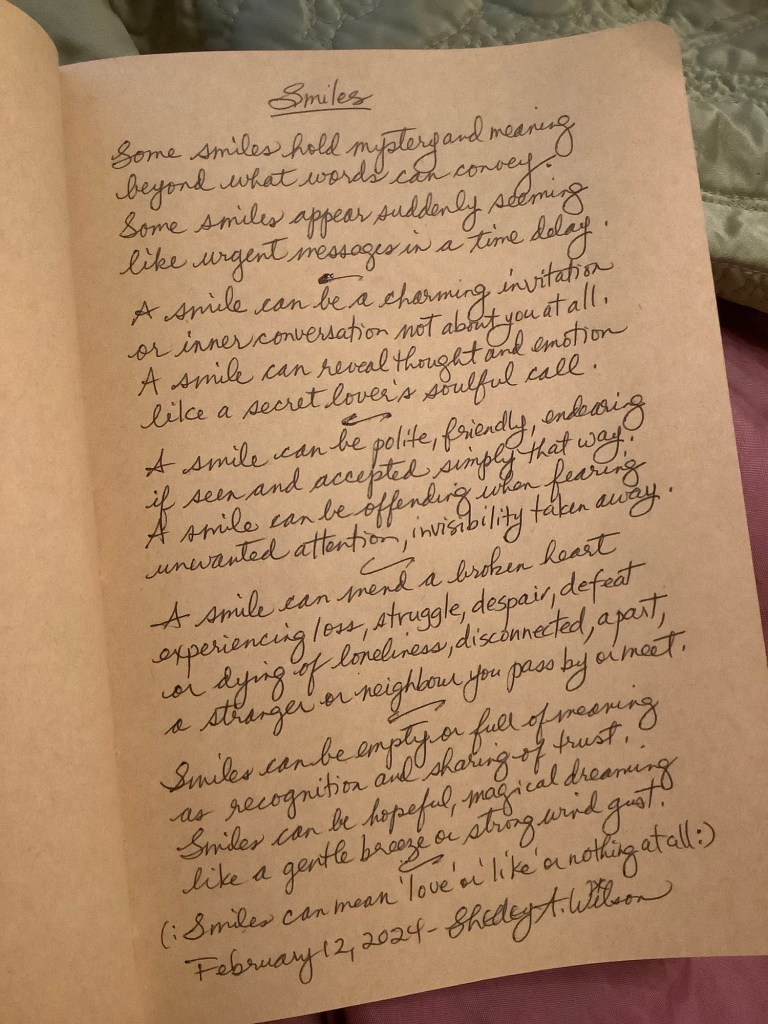 Smiles
Some smiles hold mystery and meaning
beyond what words can convey.
Some smiles appear suddenly seeming
like urgent messages in a time delay.
A smile can be a charming invitation
or inner conversation not about you at all.
A smile can reveal thought and emotion
like a secret lover's soulful call.
A smile can be polite, friendly, endearing
if seen and accepted simply that way.
A smile can be offending when fearing
unwanted attention, invisibility taken away.
A smile can mend a broken heart
experiencing loss, struggle, despair, defeat
or dying of loneliness, disconnected, apart,
a stranger or neighbour you pass by or meet.
Smiles can be empty or full of meaning
as recognition and sharing of trust.
Smiles can be hopeful, magical dreaming
like a gentle breeze or strong wind gust.
(: Smiles can mean 'love' or 'like' or nothing at all :)
February 12, 2024 - Shelley A. Wilson